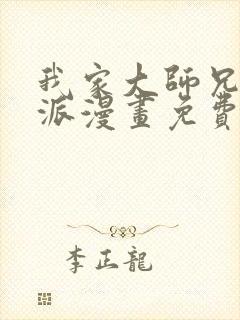 我家大師兄
派漫畫免費
李正龍